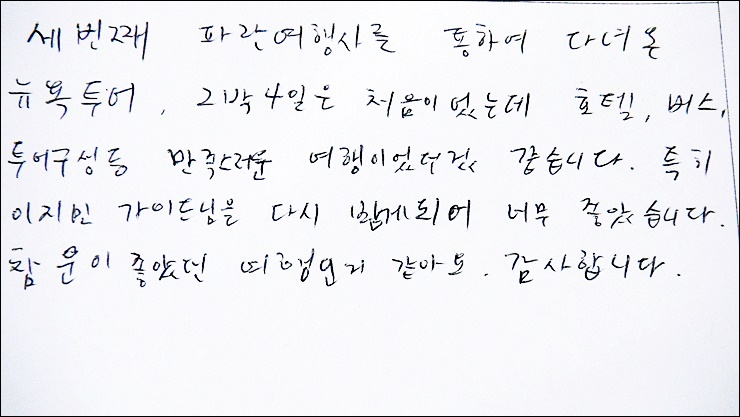 세번째 파란여행사를 통하여 다녀온
뉴욕투어, 2박4일은 처음이었는데 호텔, 버스,
투어구성등 만족스러운 여행이었던것 같습니다. 특히
이지민 가이드님을 다시 뵙게되어 너무 좋았습니다.
참 운이 좋았던 여행인거 같아요. 감사합니다.